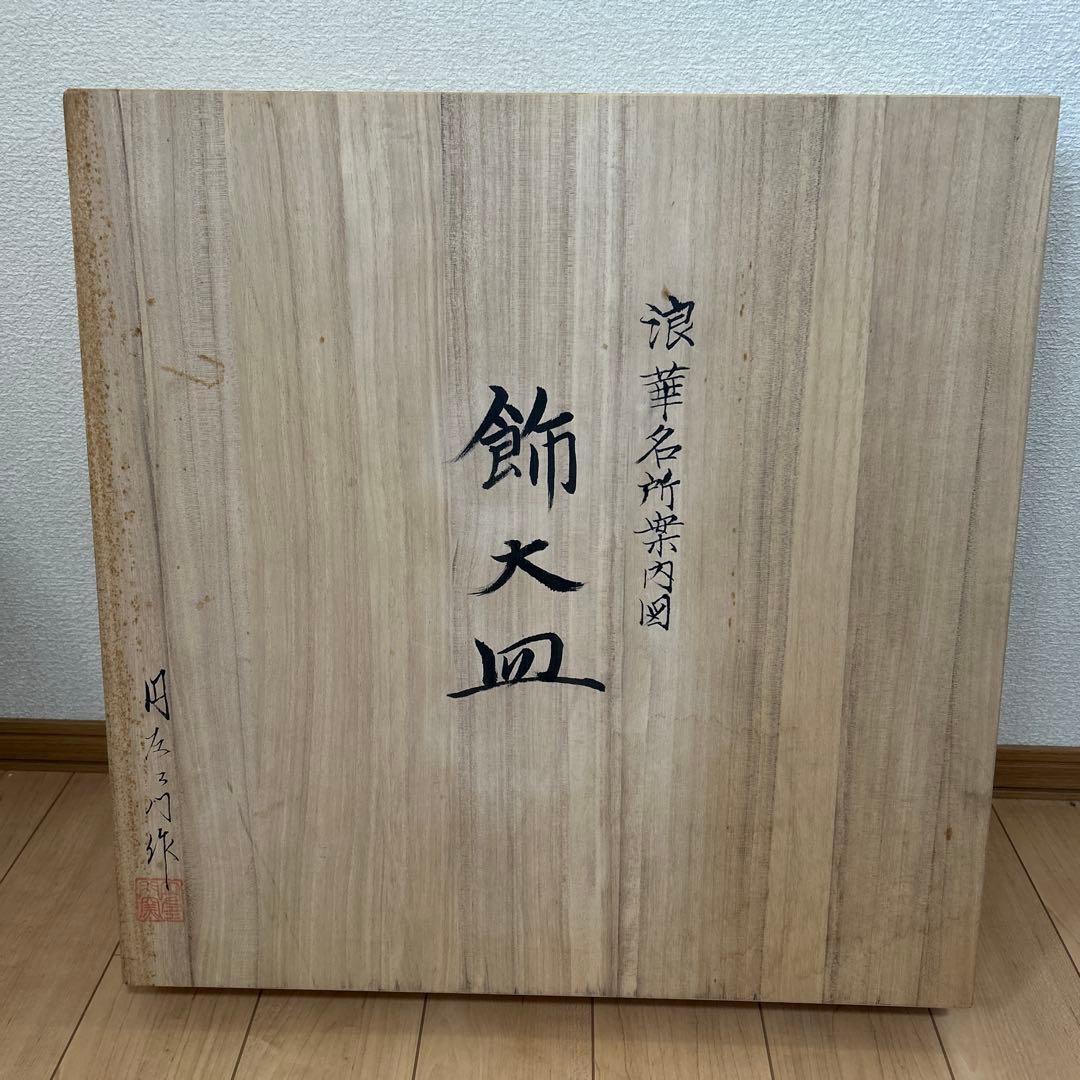 浪華名所案内図
飾大皿
円左ヱ門作